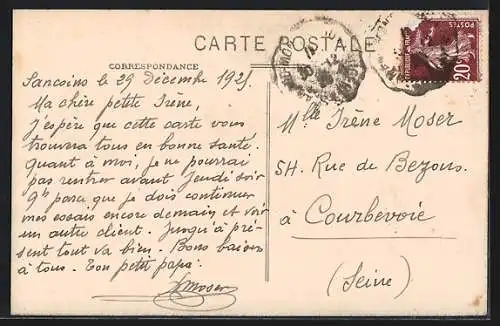 CARTE POSTALE
CORRESPONDANCE
Sancoins le 29 Décembre 192
Ma chère petite Irène,
J'espère que cette carte vous
trouvera tous en bonne santé.
Quant à moi, je ne pourrai
pas rentrer avant Jeudi soir
9h parce que je dois continuer
mes essais encore demain et voir
un autre client. Jusqu'à pré-
sent tout va bien. Bons baisers
à tous. Ton petit papa:
Moser
Mlle Irène Moser
54. Rue de Bezons.
à Courbevoie
(Seine)
POSTES
20c